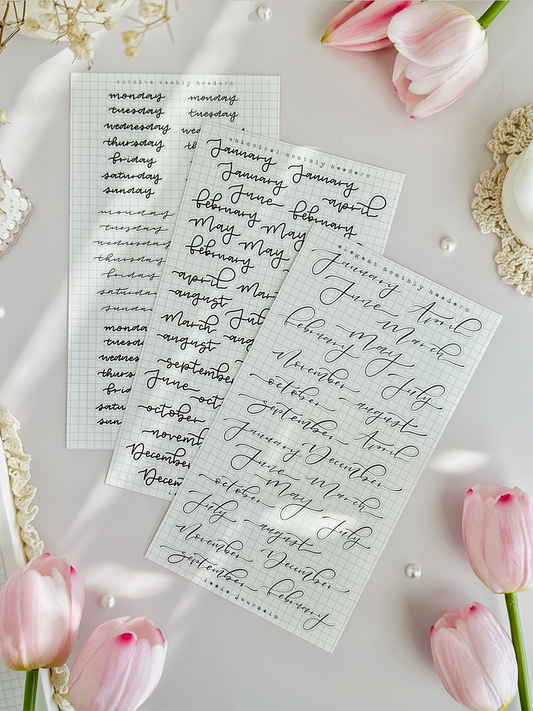 weekly headers
monday monday
tuesday tuesday
wednesday
thursday
friday
saturday
sunday
monday
tuesday
wednesday
thursday
friday
saturday
sunday
monday
tuesday
whimsical monthly headers
January January
January January
June april
february february
May May
May May
february
april
august
March July
august
september
June
october
December
elegant monthly headers
January April
June March
february May
November July
october august
september April
January December
June March
october May July
July august
November December
september february